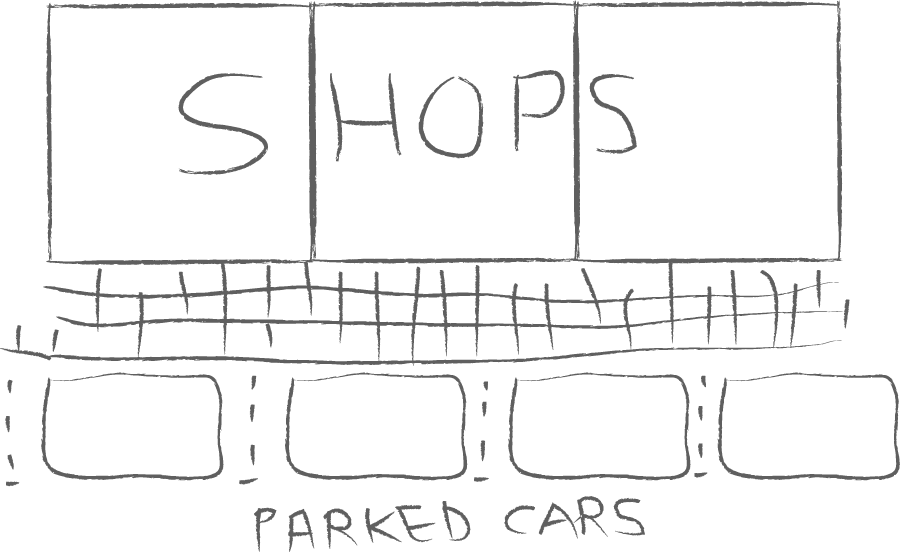 SHOPS
PARKED CARS